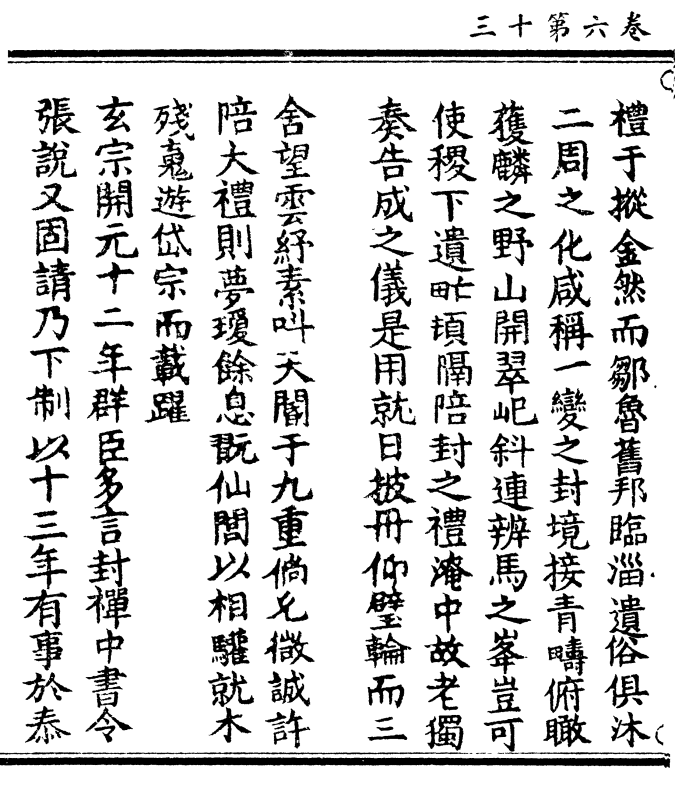 卷六第十三
禮于摐金然而鄒魯舊邦臨淄遺俗俱沐
二周之化咸稱一變之封境接青疇俯瞰
獲麟之野山開翠屺斜連辨馬之峯豈可
使稷下遺甿頓隔陪封之禮淹中故老獨
奏告成之儀是用就日披冊仰璧輪而三
舍望雲紓素叫天閽于九重倘允微誠許
陪大禮則夢瓊餘息翫仙閭以相驩就木
殘䰟遊岱宗而載躍
玄宗開元十二年群臣多言封禪中書令
張說又固請乃下制以十三年有事於泰